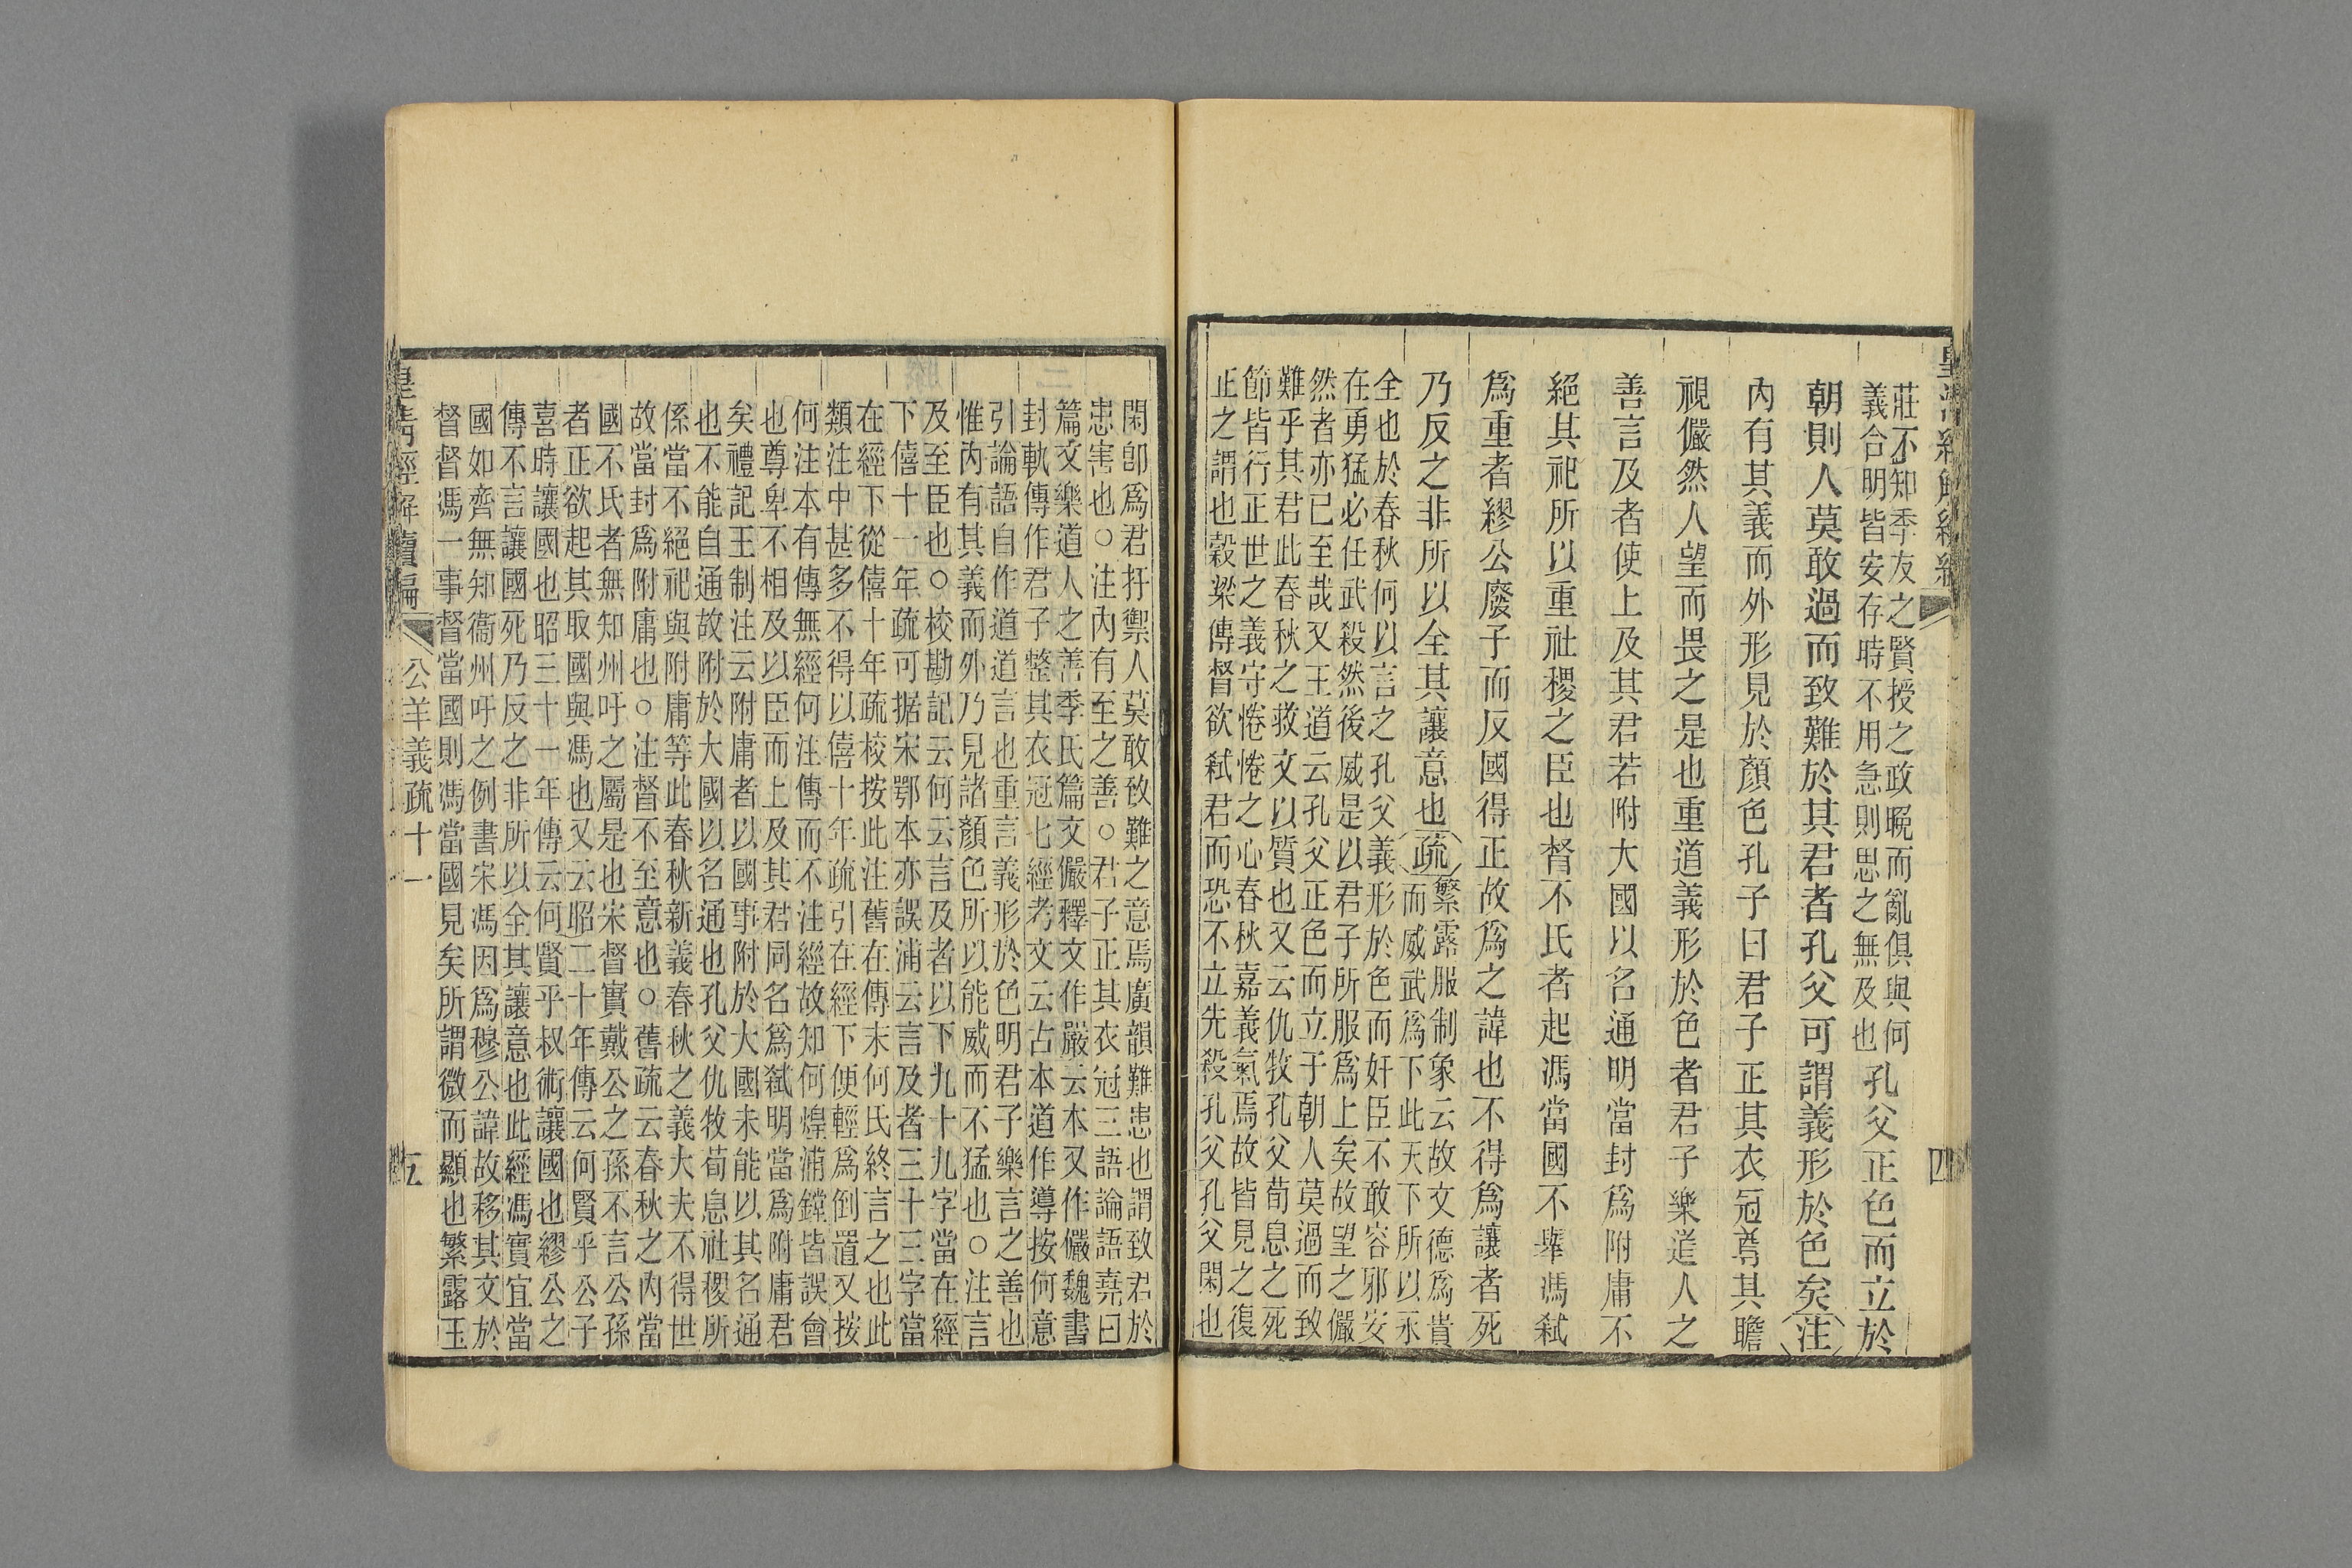 莊不知季友之賢授之政晚而亂俱與何
義合明皆安存時不用急則思之無及也
孔父正色而立於
朝則人莫敢過而致難於其君者孔父可謂義形於色矣注
內有其義而外形見於顏色孔子曰君子正其衣冠尊其瞻
視儼然人望而畏之是也重道義形於色者君子樂道人之
善言及者使上及其君若附大國以名通明當封爲附庸不
絕其祀所以重社稷之臣也督不氏者起馮當國不舉馮弒
爲重者繆公廢子而反國得正故爲之諱也不得爲讓者死
乃反之非所以全其讓意也疏
繁露服制象云故文德爲貴
而威武爲下此天下所以永
全也於春秋何以言之孔父義形於色而奸臣不敢容邪安
在勇猛必任武殺然後威是以君子所服爲上矣故望之儼
然者亦已至哉又王道云孔父正色而立于朝人莫過而致
難乎其君此春秋之救文以質也又云仇牧孔父荀息之死
節皆行正世之義守惓惓之心春秋嘉義氣焉故皆見之復
正之謂也穀梁傳督欲弒君而恐不立先殺孔父孔父閑也
四
閑卽爲君扞禦人莫敢致難之意焉廣韻難患也謂致君於
患害也○注內有至之善○君子正其衣冠三語論語堯曰
篇文樂道人之善季氏篇文儼釋文作嚴云本又作儼魏書
封軌傳作君子整其衣冠七經考文云古本道作導按何意
引論語自作道道言也重言義形於色明君子樂言之善也
惟內有其義而外乃見諸顏色所以能威而不猛也○注言
及至臣也○校勘記云何云言及者以下九十九字當在經
下僖十一年疏可据宋鄂本亦誤浦云言及者三十三字當
在經下從僖十年疏校按此注舊在傳末何氏終言之也此
類注中甚多不得以僖十年疏引在經下便輕爲倒置又按
何注本有傳無經何注傳而不注經故知何煌浦鏜皆誤會
也尊卑不相及以臣而上及其君同名爲弒明當爲附庸君
矣禮記王制注云附庸者以國事附於大國未能以其名通
也不能自通故附於大國以名通也孔父仇牧荀息社稷所
係當不絕祀與附庸等此春秋新義春秋之義大夫不得世
故當封爲附庸也○注督不至意也○舊疏云春秋之內當
國不氏者無知州吁之屬是也宋督實戴公之孫不言公孫
者正欲起其取國與馮也又云昭二十年傳云何賢乎公子
喜時讓國也昭三十一年傳云何賢乎叔術讓國也繆公之
傳不言讓國死乃反之非所以全其讓意也此經馮實宜當
國如齊無知衞州吁之例書宋馮因爲穆公諱故移其文於
督督馮一事督當國則馮當國見矣所謂微而顯也繁露玉
皇清經解續編
公羊義疏十一
五